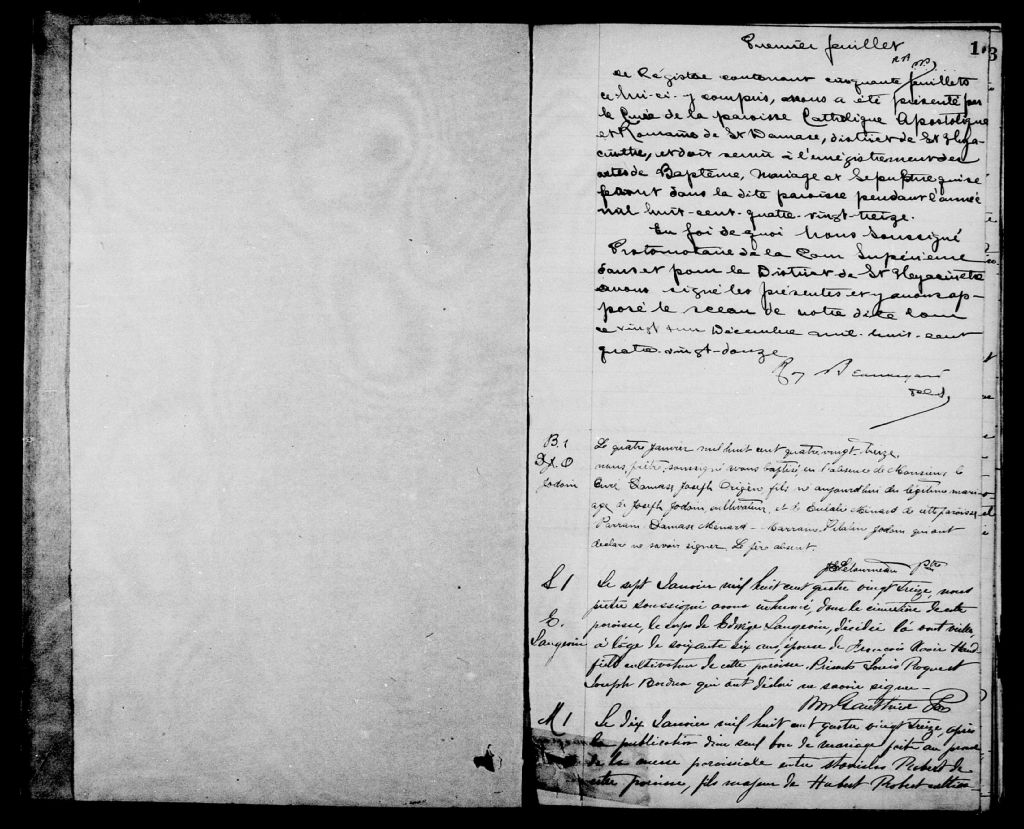 Premier feuillet
1
3
ce Régistre contenant cinquante feuillets
celui-ci y compris, nous a été présenté par
le Curé de la paroisse Catholique Apostolique
et Romaine de St Damase, district de St Hya-
cinthe, et doit servir à l'enrégistrement des
actes de Baptême, Mariage et Sépulture qui se
feront dans la dite paroisse pendant l'année
mil huit-cent-quatre-vingt-treize.
En foi de quoi Nous Soussigné
Protonotaire de la Cour Supérieure
dans et pour le District de St Hyacinthe
avons signé les présentes et y avons ap-
posé le sceau de notre dite Cour
ce vingt Décembre mil-huit-cent
quatre-vingt-douze
Roy Beauregard
B. 1
Jodoin
Le quatre Janvier mil huit cent quatre vingt-treize,
nous, prêtre, soussigné avons baptisé en l'absence de Monsieur le
Curé Damase Joseph Origène fils né aujourd'hui du légitime mari-
age de Joseph Jodoin cultivateur, et de Eulalie Menard de cette paroisse
Parrain Damase Menard - Marraine Jodoin qui ont
déclaré ne savoir signer. Le père absent.
Letourneau Ptre
S 1
E.
Langevin
Le sept Janvier mil huit cent quatre vingt treize, nous
prêtre soussigné avons inhumé, dans le cimetière de cette
paroisse, le corps de Edwige Langevin, décédée la avant veille,
à l'âge de soixante six ans, épouse de François Xavier
cultivateur de cette paroisse. Présents Louis Roque et
Joseph Bordua qui ont déclaré ne savoir signer -
Gauthier Ptre
M 1
Le dix Janvier mil huit cent quatre vingt treize, après
la publication d'un seul ban de mariage faite au prône
de la messe paroissiale entre Stanislas Robert de
cette paroisse, fils majeur de Hubert Robert cultiva-